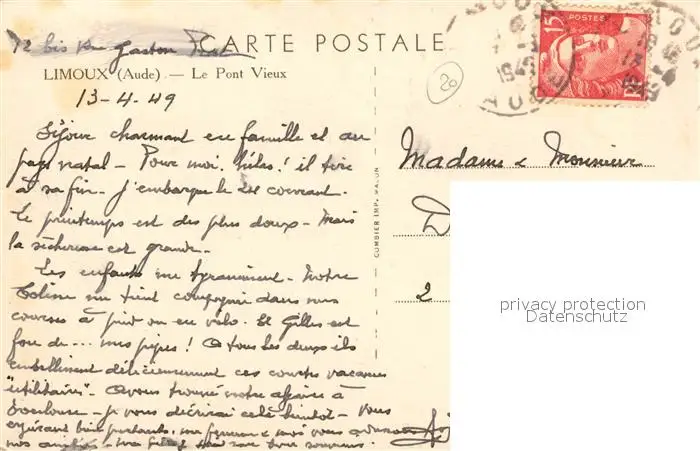 12 bis Rue Gaston
CARTE POSTALE
LIMOUX (Aude) — Le Pont Vieux
13-4-49
Séjour charmant en famille et au
pays natal — Pour moi, hélas! il tire
à sa fin — J'embarque le 21 courant.
Le printemps est des plus doux — Mais
la sécheresse est grande —
Les enfants me tyrannisent — Notre
me tient compagnie dans mes
courses à pied ou en vélo. Et Gilles est
fou de --- mes pipes! A tous les deux ils
embellissent délicieusement ces courtes vacances
"utilitaires" — Avons trouvé notre affaire à
Toulouse — Je vous décrirai cela bientôt — Vous
bien portants, ma femme & moi vous
nos amitiés —
20
15F
POSTES
1949
COMBIER IMP. MACON
Madame & Monsieur
D
2
privacy protection
Datenschutz